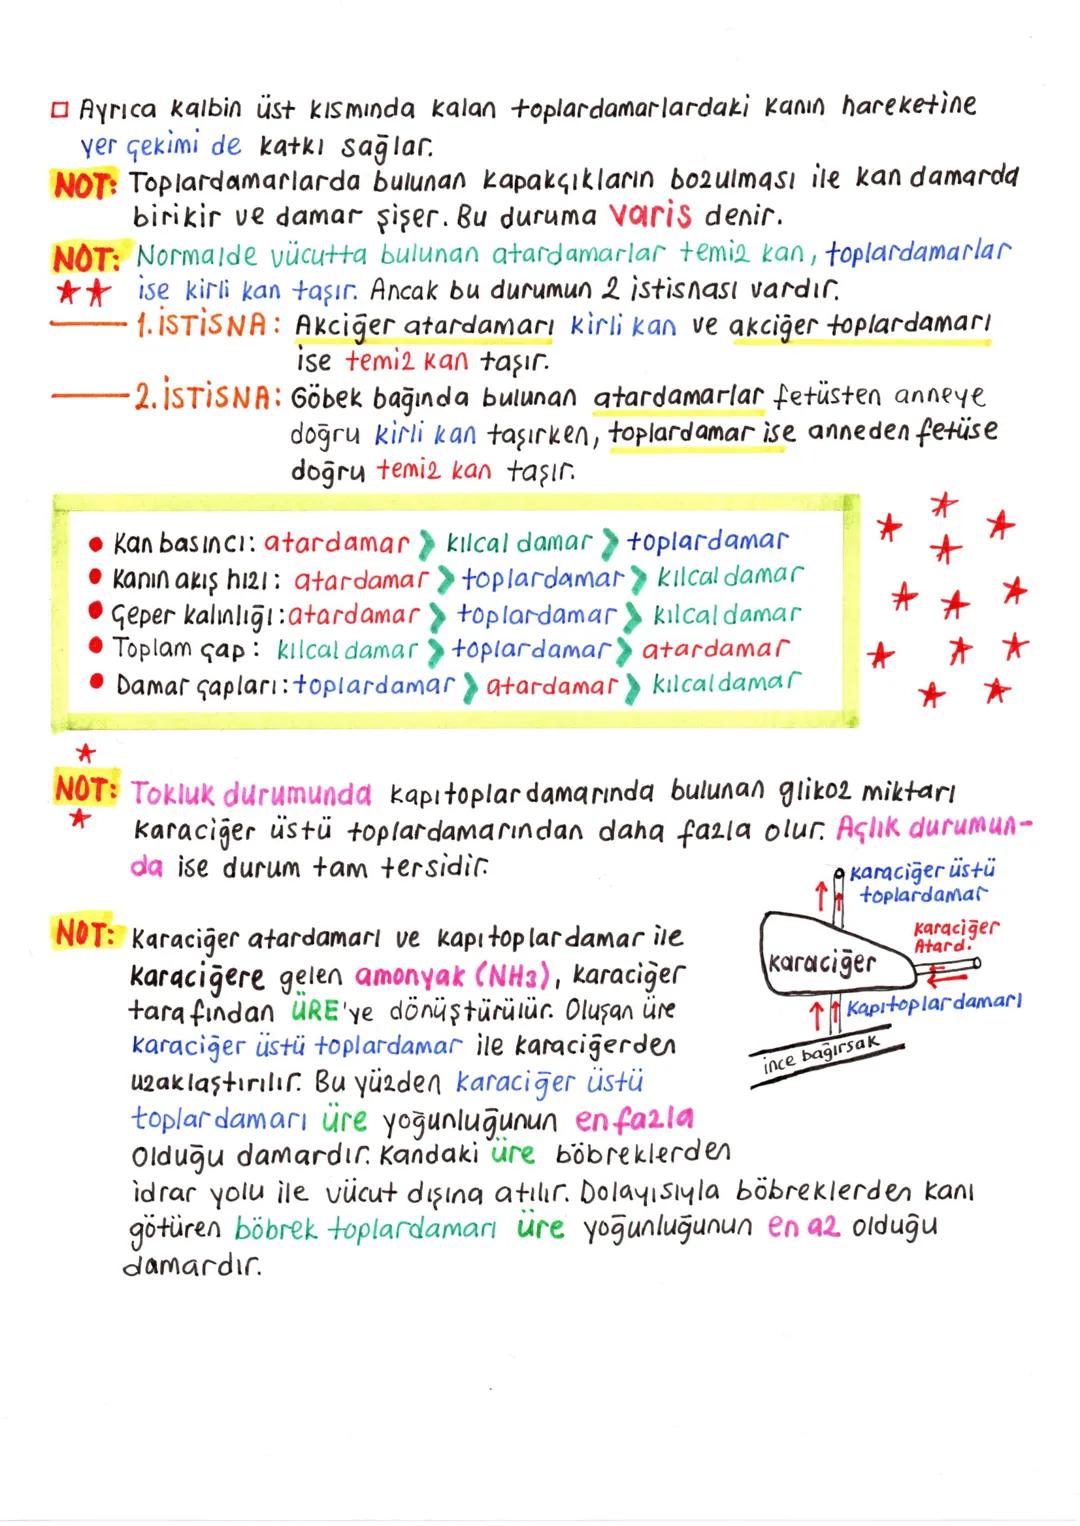 □ Ayrıca kalbin üst kısmında kalan toplardamarlardaki kanın hareketine
yer çekimi de katkı sağlar.
NOT: Toplardamarlarda bulunan kapakçıkların bozulması ile kan damarda
birikir ve damar şişer. Bu duruma varis denir.
NOT: Normalde vücutta bulunan atardamarlar temiz kan, toplardamarlar
★★ ise kirli kan taşır. Ancak bu durumun 2 istisnası vardır.
1. İSTİSNA: Akciğer atardamarı kirli kan ve akciğer toplardamarı
ise temiz kan taşır.
2. İSTİSNA: Göbek bağında bulunan atardamarlar fetüsten anneye
doğru kirli kan taşırken, toplardamar ise anneden fetüse
doğru temiz kan taşır.
• Kan basıncı: atardamar > kılcal damar > toplardamar
• Kanın akış hızı: atardamar > toplardamar > kılcal damar
• Çeper kalınlığı: atardamar > toplardamar > kılcal damar
• Toplam çap: kılcal damar > toplardamar > atardamar
• Damar çapları: toplardamar > atardamar > kılcal damar
NOT: Tokluk durumunda kapı toplardamarında bulunan glikoz miktarı
karaciğer üstü toplardamarından daha fazla olur. Açlık durumun-
da ise durum tam tersidir.
Karaciğer üstü
toplardamar
Karaciğer
Atard.
karaciğer
Kapı toplardamarı
ince bağırsak
NOT: Karaciğer atardamarı ve kapı toplardamar ile
karaciğere gelen amonyak (NH3), karaciğer
tarafından ÜRE'ye dönüştürülür. Oluşan üre
karaciğer üstü toplardamar ile karaciğerden
uzaklaştırılır. Bu yüzden karaciğer üstü
toplardamarı üre yoğunluğunun en fazla
olduğu damardır. Kandaki üre böbreklerden
idrar yolu ile vücut dışına atılır. Dolayısıyla böbreklerden kanı
götüren böbrek toplardamarı üre yoğunluğunun en az olduğu
damardır.